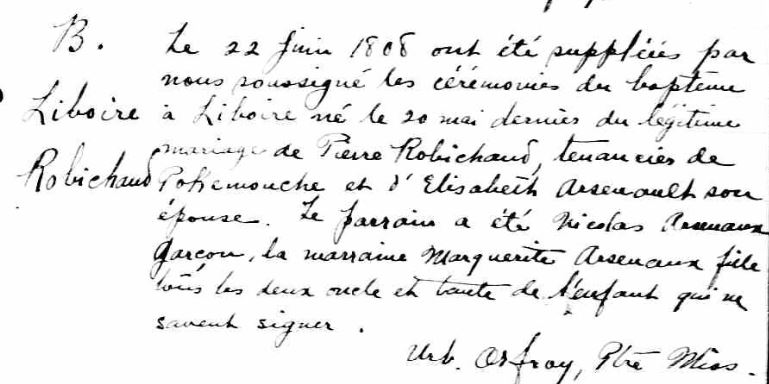 B. Le 22 Juin 1808 ont été suppléés par
nous soussigné les cérémonies du bapteme
Liboire à Liboire né le 20 mai dernier du légitime
mariage de Pierre Robichaud, tenancier de
Robichaud Pokemouche et d'Elisabeth Arsenault son
épouse. Le parrain a été Nicolas Arsenaux
garçon, la marraine Marguerite Arsenaux fille
tous les deux oncle et tante de l'enfant qui ne
savent signer.
Urb. Orfroy, Ptre Miss.